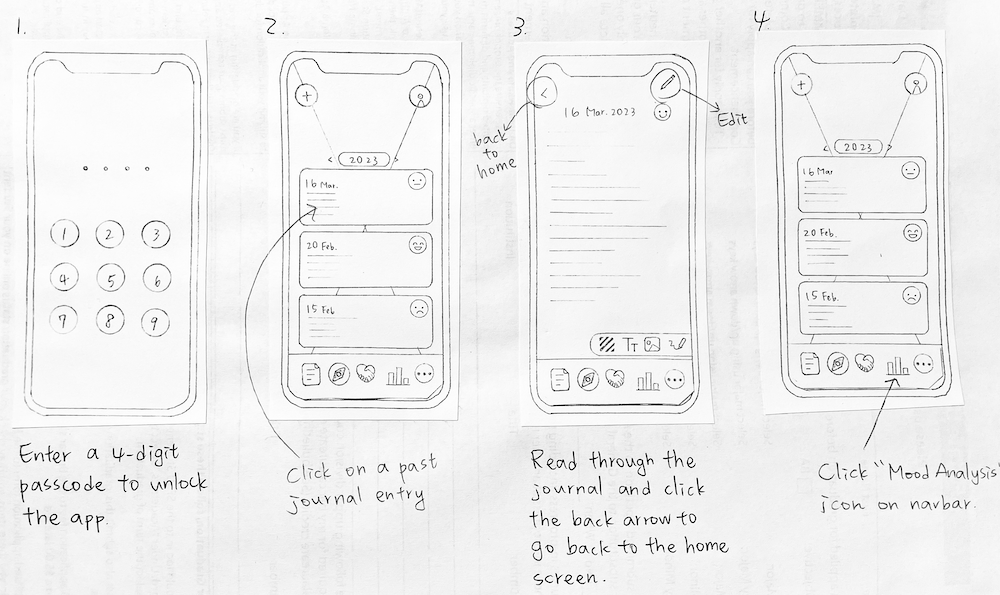 1.
1 2 3
4 5 6
7 8 9
Enter a 4-digit
passcode to unlock
the app.
2.
+
< 2023 >
16 Mar.
20 Feb.
15 Feb
Click on a past
journal entry
3.
<
16 Mar. 2023
back
to
home
Edit
TT
Read through the
journal and click
the back arrow to
go back to the home
screen.
4.
+
< 2023 >
16 Mar
20 Feb.
15 Feb.
Click "Mood Analysis"
icon on navbar.